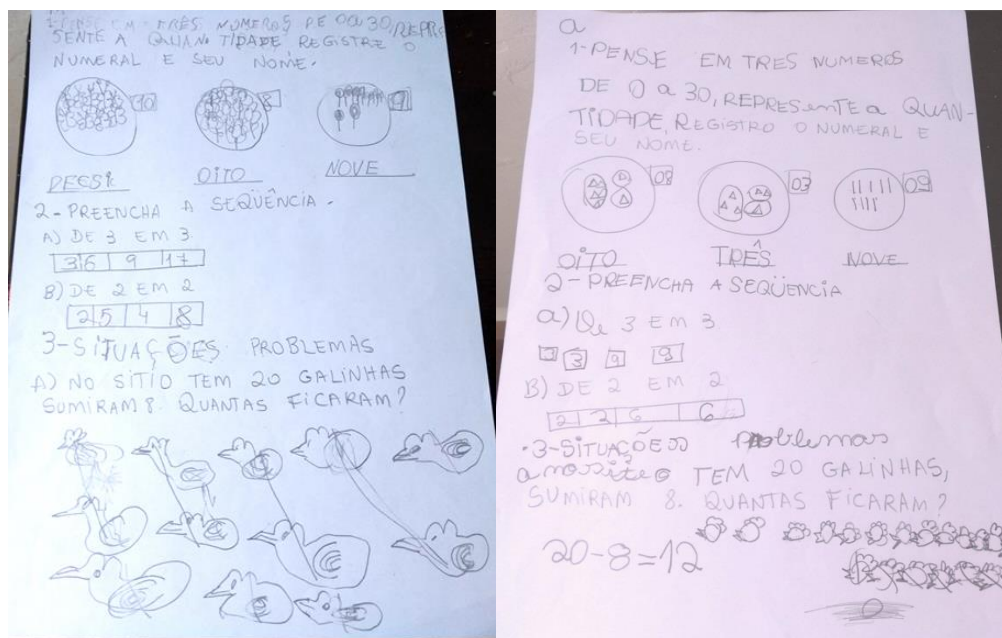 1-PENSE EM TRÊS NUMEROS DE 0 a 30, REPRE
SENTE A QUANTIDADE REGISTRE O
NUMERAL E SEU NOME.
10 8 9
OITO NOVE
2-PREENCHA A SEQÜÊNCIA.
A) DE 3 EM 3
3 6 9 17
B) DE 2 EM 2
2 5 4 8
3-SITUAÇÕES PROBLEMAS
A) NO SÍTIO TEM 20 GALINHAS
SUMIRAM 8. QUANTAS FICARAM?
a
1-PENSE EM TRES NUMEROS
DE 0 a 30, REPRESENTE a QUAN-
TIDADE, REGISTRO O NUMERAL E
SEU NOME.
08 03 09
OITO TRÊS NOVE
2-PREENCHA A SEQÜENCIA
a) De 3 EM 3
3 9 9
B) DE 2 EM 2
2 2 6 6
3-SITUAÇÕES problemas
a no sitio TEM 20 GALINHAS,
SUMIRAM 8. QUANTAS FICARAM?
20-8=12